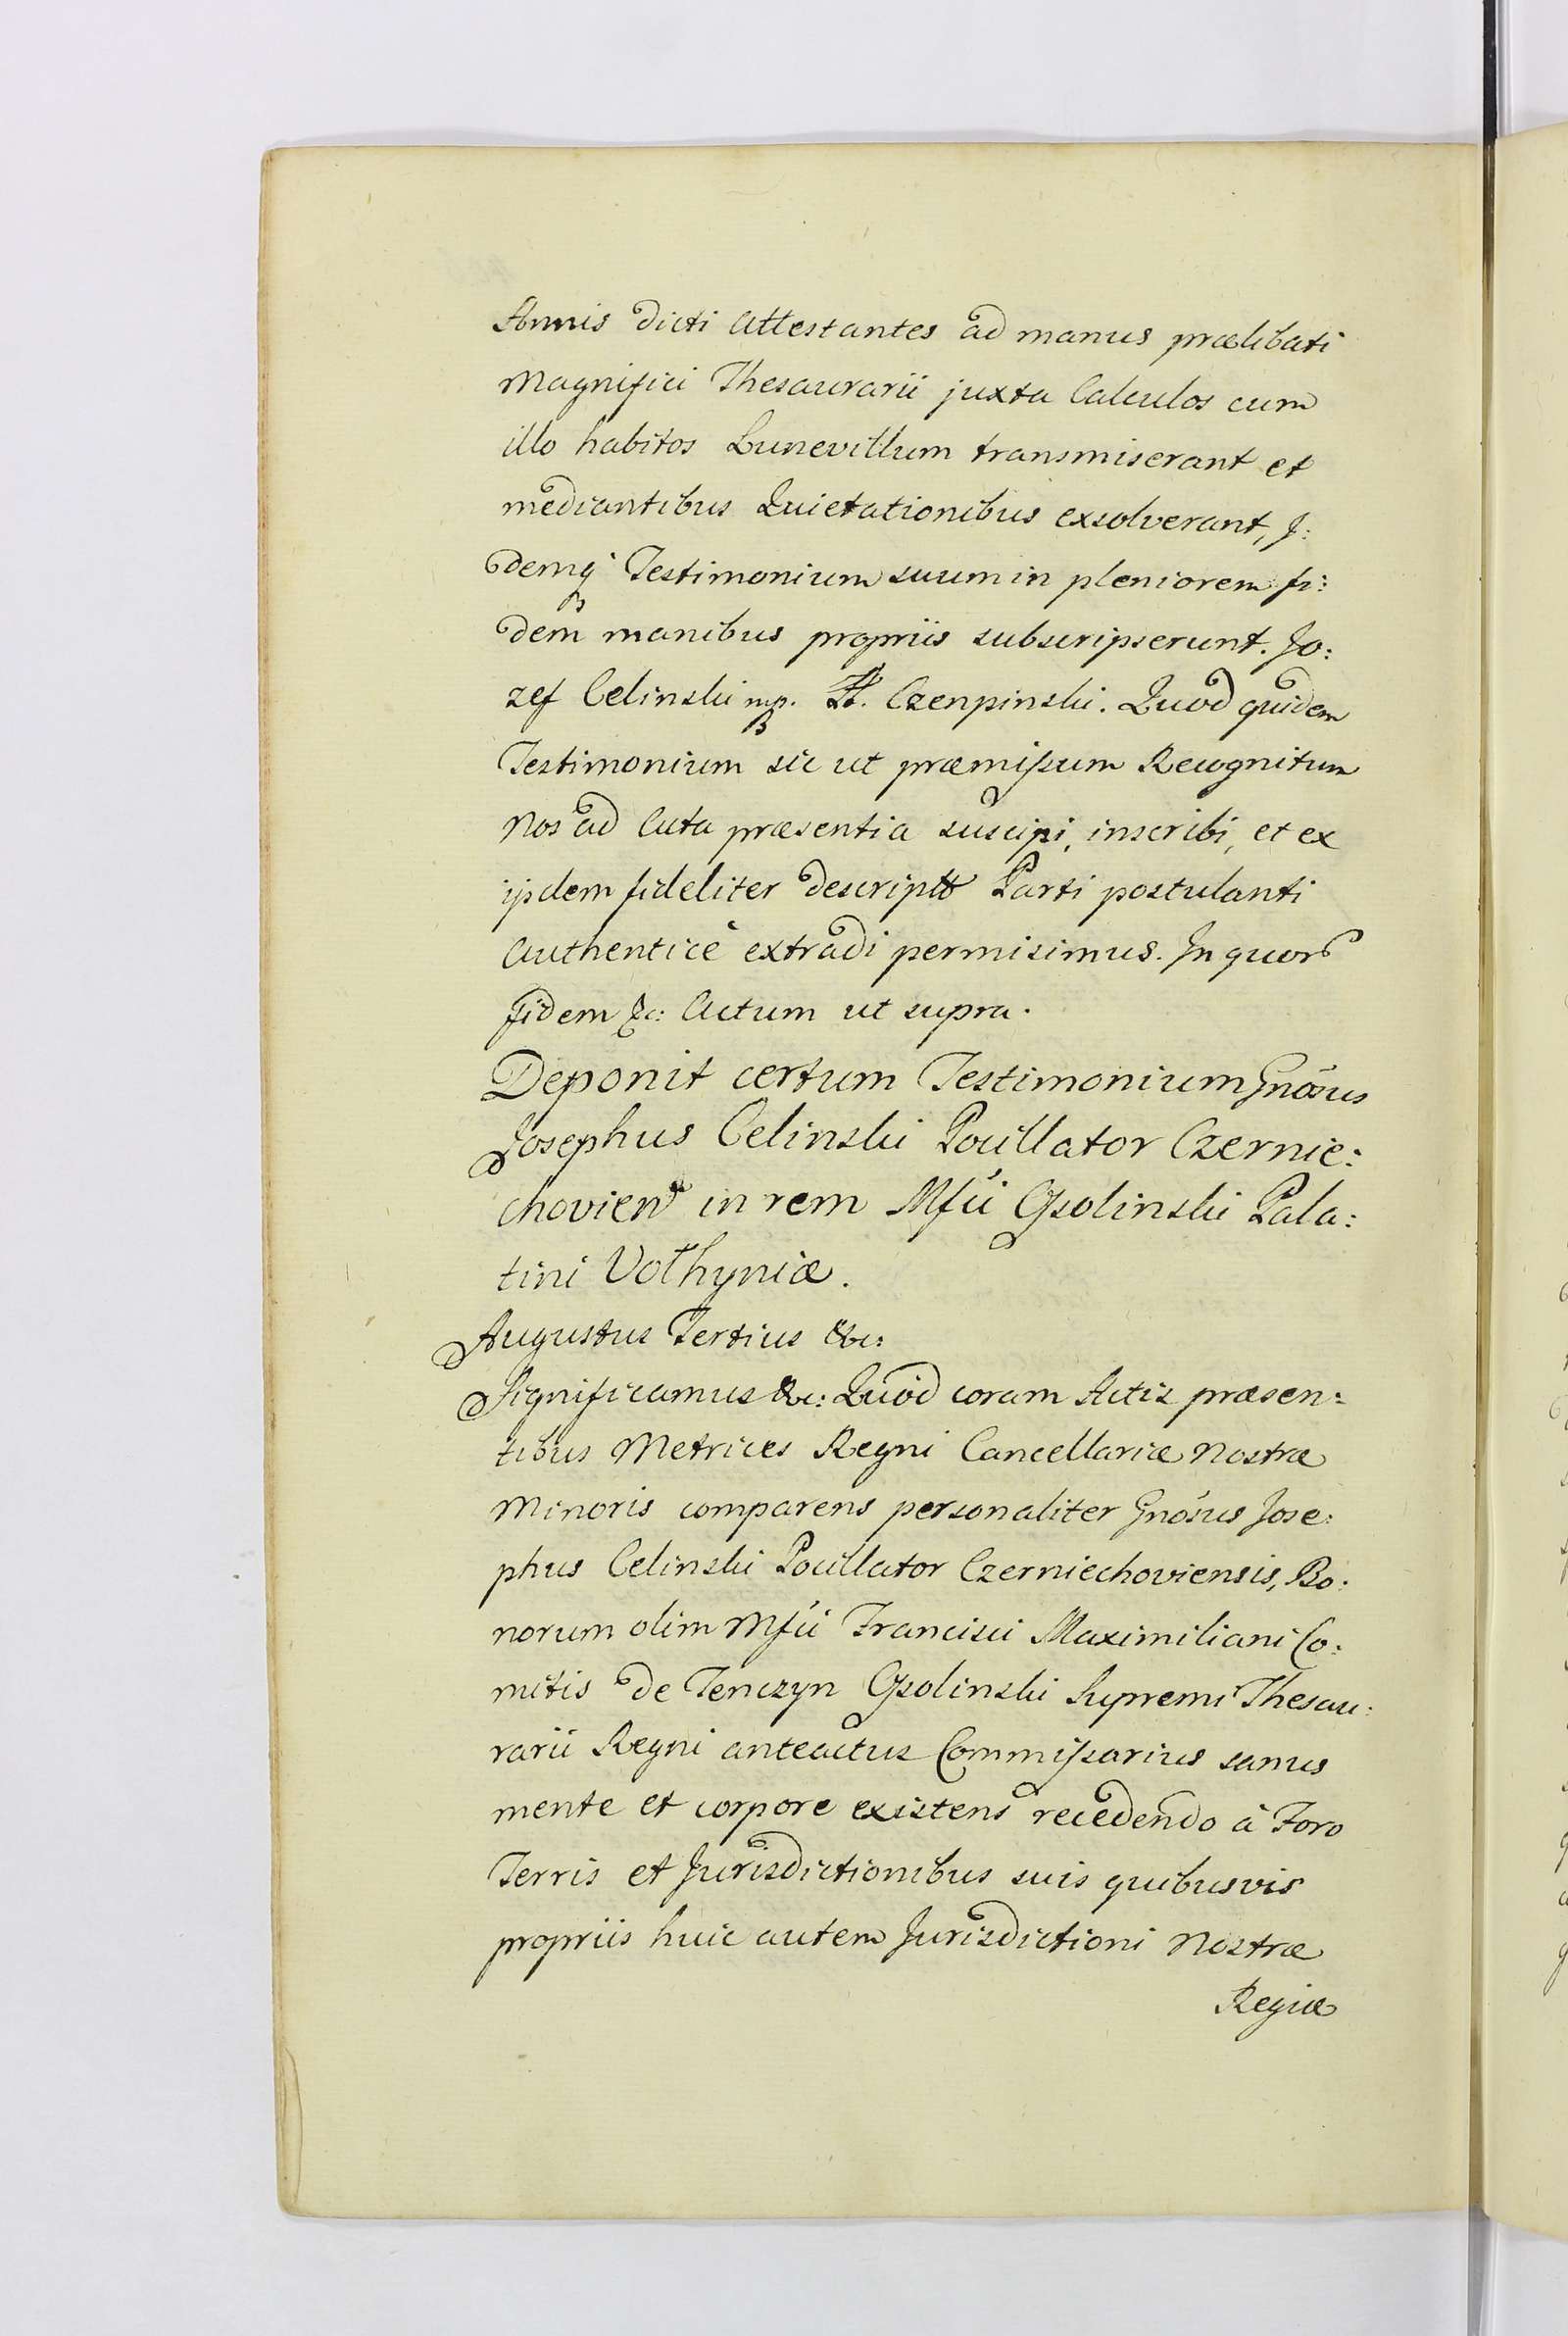 Annis dicti Attestantes ad manus prælibati
Magnifici Thesaurarii juxta Calculos cum
illo habitos Lunevillum transmiserant et
mediantibus Quietationibus exsolverant, I:
demq́ Testimonium suum in pleniorem fi:
dem manibus propriis subscripserunt. Jo:
zef Celinski mp. Czenpinski. Quod quidem
Testimonium sic ut præmissum Recognitum
Nos ad Acta præsentia suscipi, inscribi, et ex
ijsdem fideliter descriptt Parti postulanti
Authenticè extradi permisimus. In quor
fidem &c: Actum ut supra.
Deponit certum Testimonium Gnōsus
Josephus Celinski Pocillator Czernie:
chovien in rem Mfci Ossolinski Pala:
tini Volhyniæ.
Augustus Tertius &c:
Significamus &c: Quòd coram Actis præsen:
tibus Metrices Regni Cancellariæ Nostræ
Minoris comparens personaliter Gnōsus Jose:
phus Celinski Pocillator Czerniechoviensis, Bo:
norum olim Mfci Francisci Maximiliani Co:
mitis de Tenczyn Ossolinski Supremi Thesau:
rarii Regni anteactus Commissarius sanus
mente et corpore existens recedendo à Foro
Terris et Jurisdictionibus suis quibusvis
propriis huic autem Jurisdictioni Nostræ
Regiæ